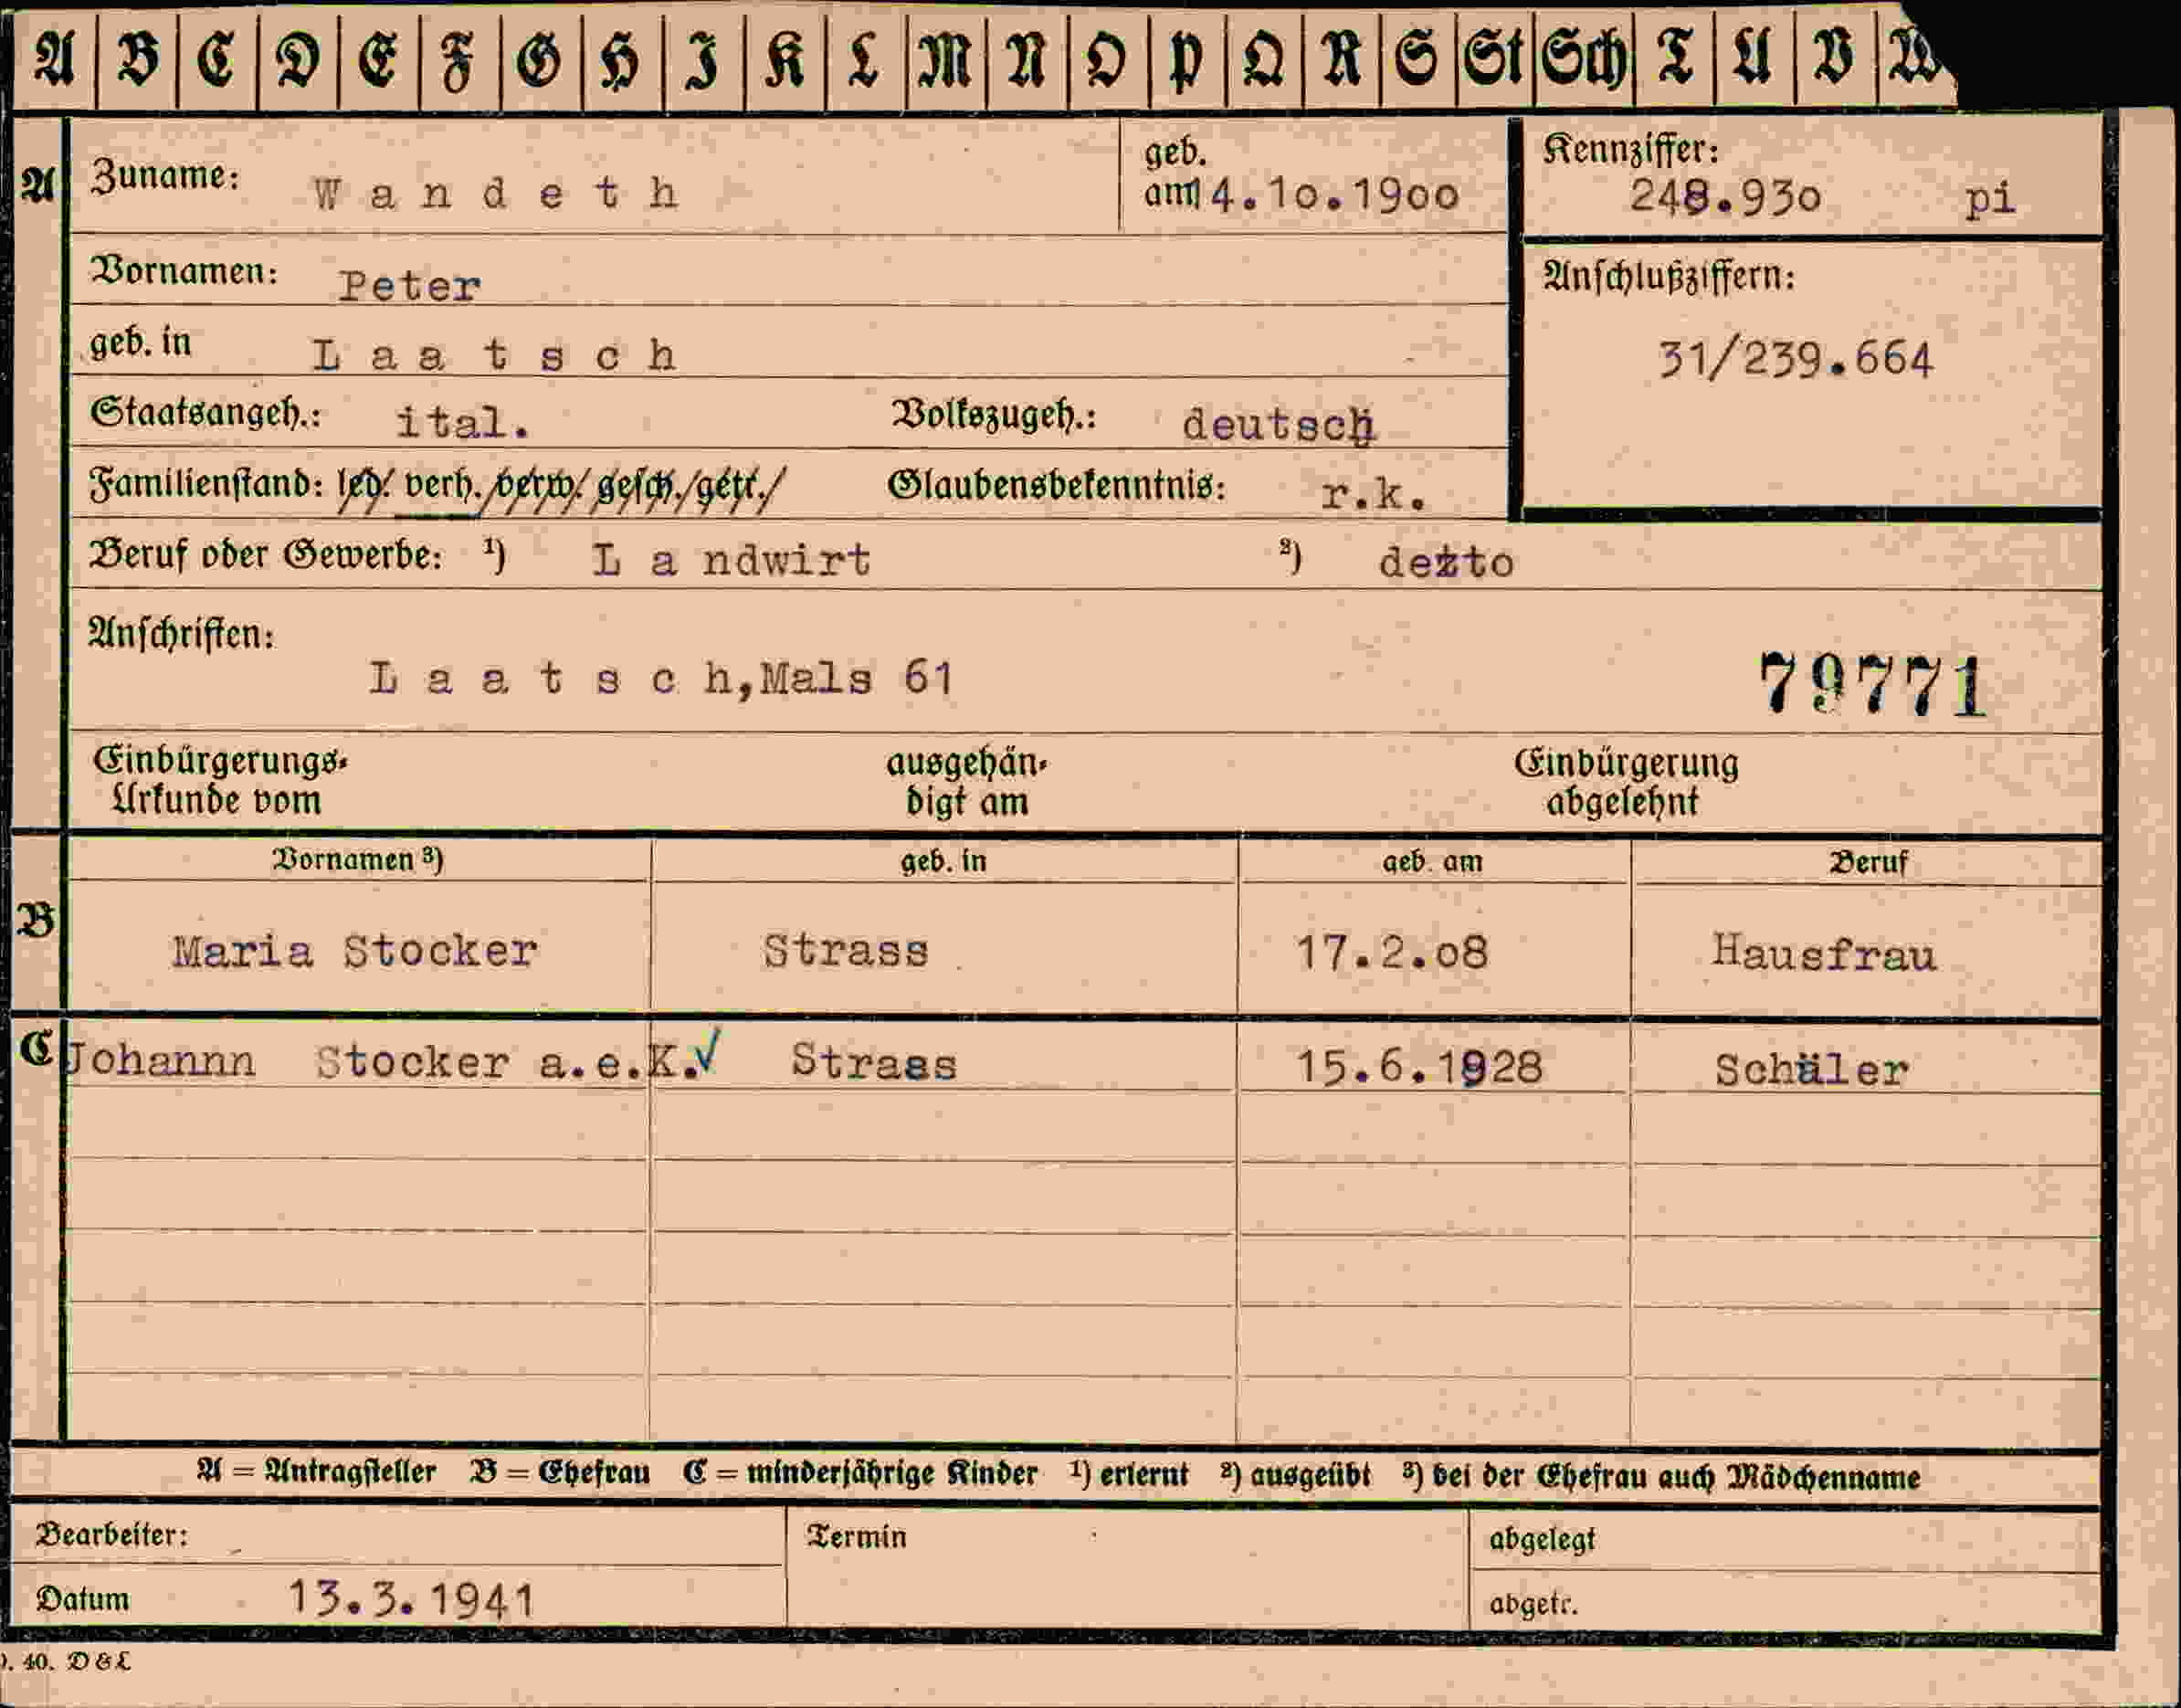 A B C D E F G H I K L M N O P Q R S St Sch T U V W
A Zuname: Wandeth geb. am 14.10.1900 Kennziffer: 248.930 pi
Vornamen: Peter Anschlußziffern:
geb. in Laatsch 31/239.664
Staatsangeh.: ital. Volkszugeh.: deutsch
Familienstand: led. verh. verw. gesch. getr. Glaubensbekenntnis: r.k.
Beruf oder Gewerbe: ¹) Landwirt ²) detto
Anschriften:
Laatsch,Mals 61 79771
Einbürgerungs- ausgehän- Einbürgerung
Urkunde vom digt am abgelehnt
B Vornamen ³) geb. in geb. am Beruf
Maria Stocker Strass 17.2.08 Hausfrau
C Johannn Stocker a.e.K.√ Strass 15.6.1928 Schäler
A = Antragsteller B = Ehefrau C = minderjährige Kinder ¹) erlernt ²) ausgeübt ³) bei der Ehefrau auch Mädchenname
Bearbeiter: Termin abgelegt
Datum 13.3.1941 abgetr.
40. D & L